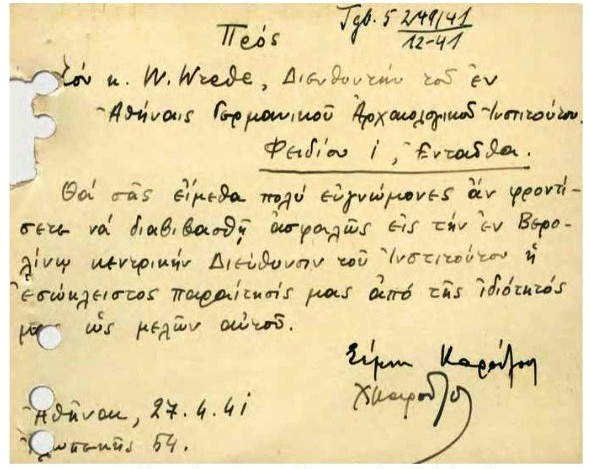 Tgb. 5 249/41
12-41
Πρός
Τόν κ. W. Wrede, Διευθυντήν τοῦ ἐν
Ἀθήναις Γερμανικοῦ Ἀρχαιολογικοῦ Ἰνστιτούτου.
Φειδίου 1, Ἐνταῦθα.
Θά σᾶς εἴμεθα πολύ εὐγνώμονες ἄν φροντί-
σετε νά διαβιβασθῇ ἀσφαλῶς εἰς τήν ἐν Βερο-
λίνῳ κεντρικήν Διεύθυνσιν τοῦ Ἰνστιτούτου ἡ
ἐσώκλειστος παραίτησίς μας ἀπό τῆς ἰδιότητός
μας ὡς μελῶν αὐτοῦ.
Σέμνη Καρούζου
Χ Καρούζος
Ἀθῆναι, 27.4.41
Ἀλωπεκῆς 54.